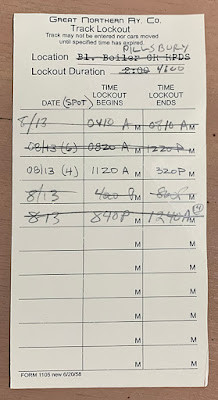 Great Northern Ry. Co.
Track Lockout
Track may not be entered nor cars moved
until specified time has expired.
PILLSBURY
Location Bl. Boiler OH HPDS
Lockout Duration 2:00 4:00
DATE (SPOT) TIME LOCKOUT BEGINS TIME LOCKOUT ENDS
8/13 0410 A M 0810 A M
08/13 (G) 0820 A M 1220 P M
08/13 (H) 1120 A M 320P M
8/13 400 P M 800P M
8/13 840P M 1240A M
M M
M M
M M
M M
M M
FORM 1105 new 6/20/58